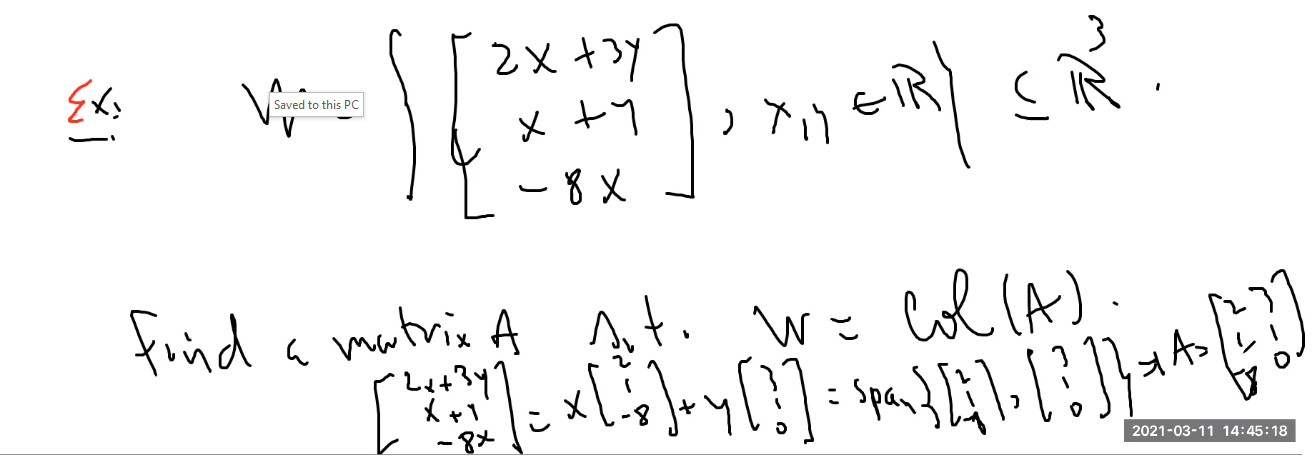 Ex: W = { [ 2x + 3y ; x + y ; -8x ] , x, y ∈ ℝ } ⊆ ℝ³ .
Saved to this PC
Find a matrix A s.t. W = Col(A).
[ 2x+3y ; x+y ; -8x ] = x [ 2 ; 1 ; -8 ] + y [ 3 ; 1 ; 0 ] = span{ [ 2 ; 1 ; -8 ] , [ 3 ; 1 ; 0 ] } → A = [ 2 3 ; 1 1 ; -8 0 ]
2021-03-11 14:45:18